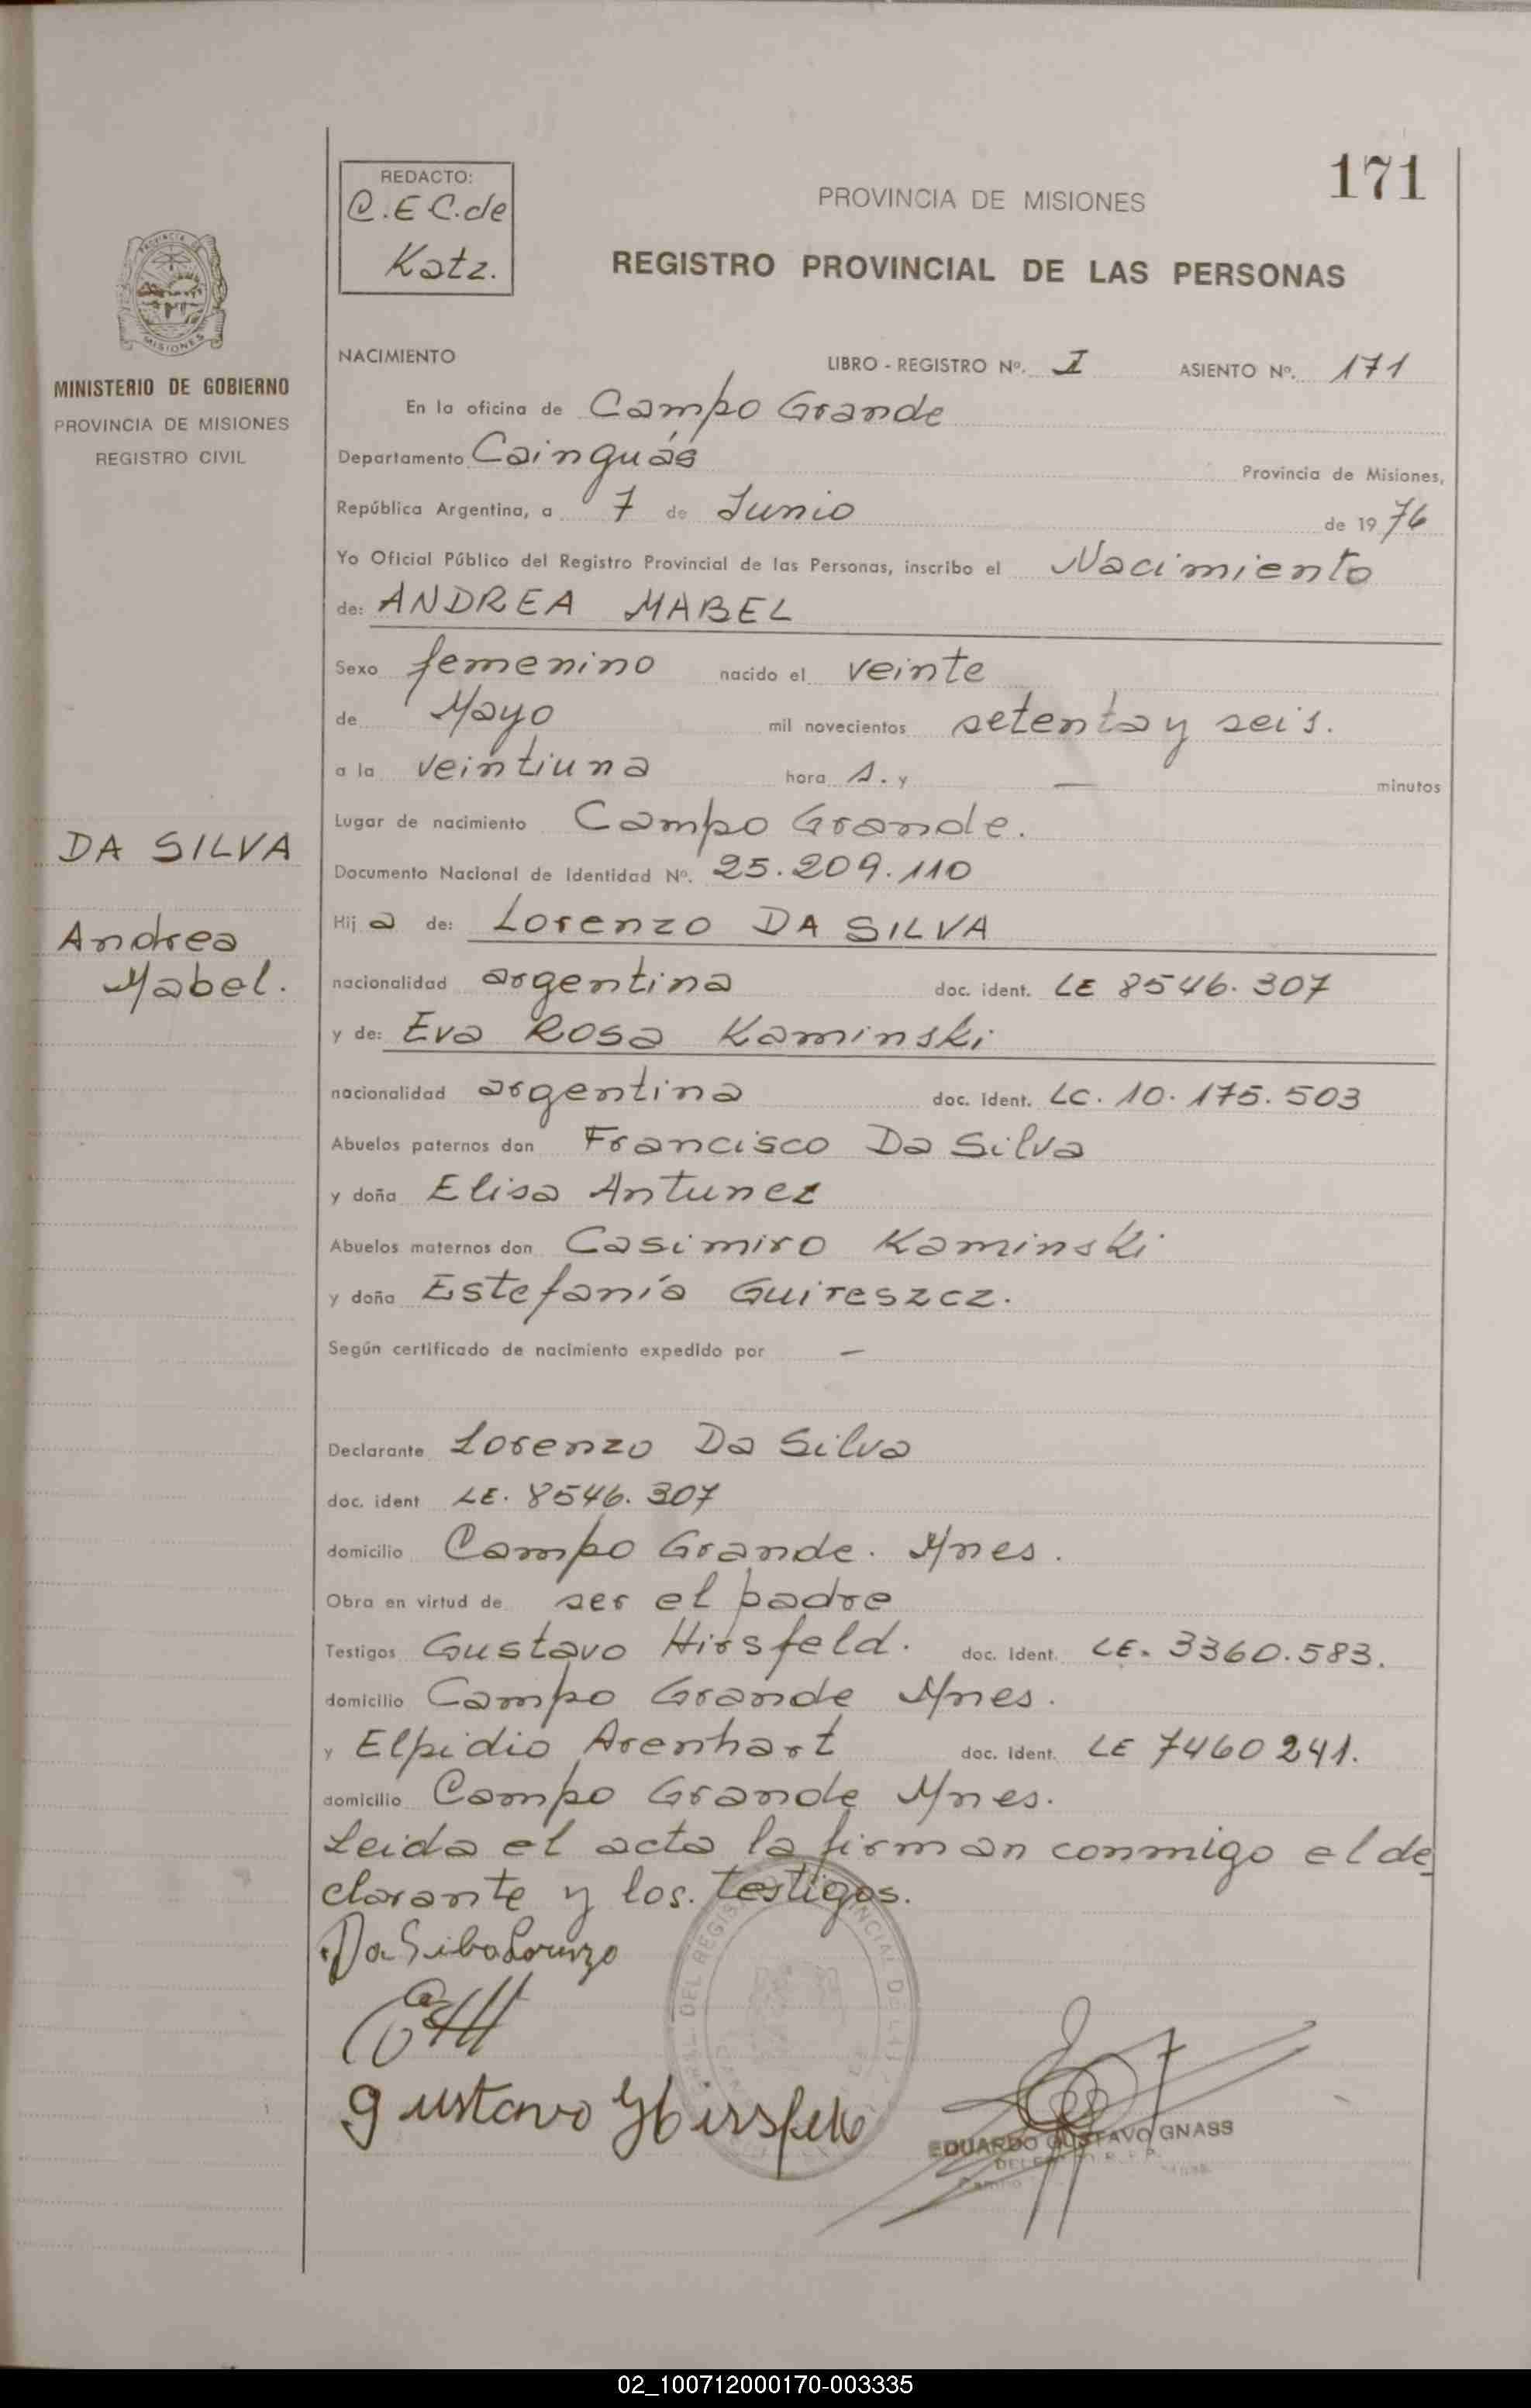 171
REDACTO:
C.E C.de
Katz.
PROVINCIA DE MISIONES
REGISTRO PROVINCIAL DE LAS PERSONAS
PROVINCIA DE
MISIONES
MINISTERIO DE GOBIERNO
PROVINCIA DE MISIONES
REGISTRO CIVIL
DA SILVA
Andrea
Mabel.
NACIMIENTO LIBRO - REGISTRO Nº. I ASIENTO Nº. 171
En la oficina de Campo Grande
Departamento Cainguás Provincia de Misiones,
República Argentina, a 7 de Junio de 19 76
Yo Oficial Público del Registro Provincial de las Personas, inscribo el Nacimiento
de: ANDREA MABEL
Sexo femenino nacido el veinte
de Mayo mil novecientos setenta y seis.
a la veintiuna hora s. y — minutos
Lugar de nacimiento Campo Grande.
Documento Nacional de Identidad Nº. 25.209.110
Hij a de: Lorenzo DA SILVA
nacionalidad argentina doc. ident. LE 8546.307
y de: Eva Rosa Kaminski
nacionalidad argentina doc. ident. LC. 10.175.503
Abuelos paternos don Francisco Da Silva
y doña Elisa Antunez
Abuelos maternos don Casimiro Kaminski
y doña Estefanía Guireszcz.
Según certificado de nacimiento expedido por —
Declarante Lorenzo Da Silva
doc. ident LE. 8546.307
domicilio Campo Grande. Mnes.
Obra en virtud de ser el padre
Testigos Gustavo Hirsfeld. doc. ident. LE. 3360.583.
domicilio Campo Grande Mnes.
y Elpidio Arenhart doc. ident. LE 7460241.
domicilio Campo Grande Mnes.
Leida el acta la firman conmigo el de
clarante y los testigos.
Da Silva Lorenzo
Gustavo Hirsfeld
EDUARDO GUSTAVO GNASS
02_100712000170-003335